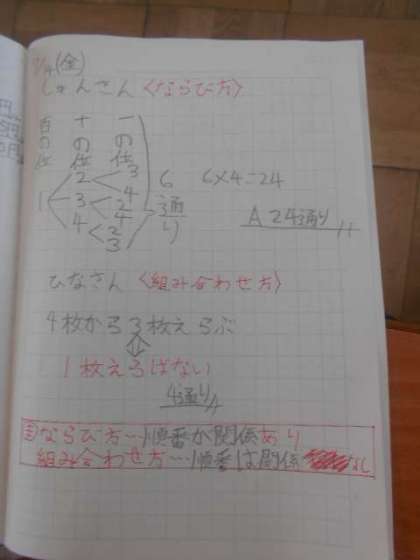 7/4(金)
じゅんさん〈ならび方〉
百の位 十の位 一の位
1
2
3
4
3
4
2
4
2
3
6通り
6×4=24
A 24通り
ひなさん〈組み合わせ方〉
4枚から3枚えらぶ
1枚えらばない
4通り
ま ならび方…順番が関係あり
組み合わせ方…順番は関係なし